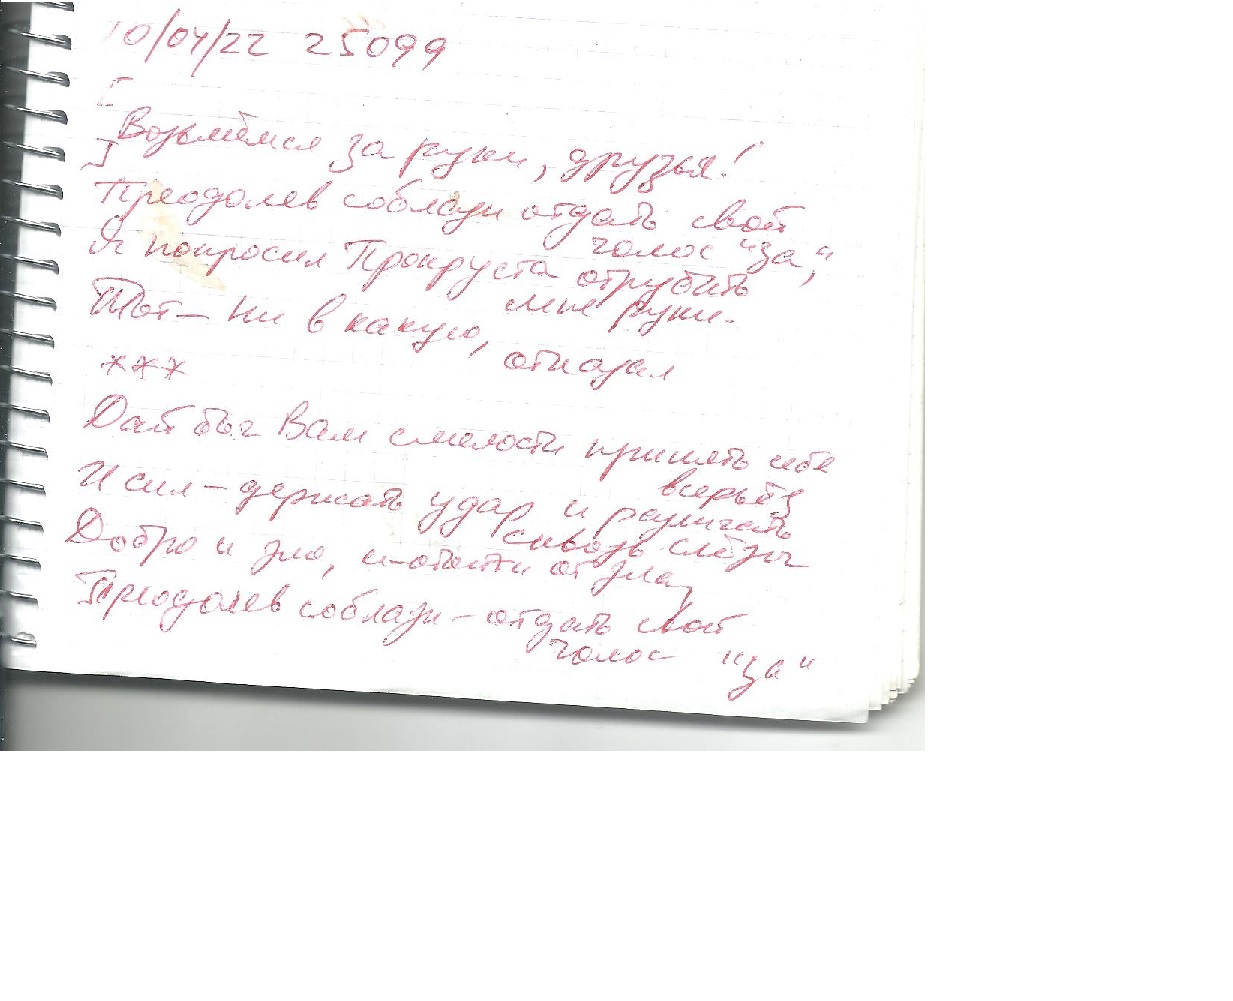 10/04/22 25099
[
Возьмёмся за руки, друзья!
]
Преодолев соблазн отдать свой
голос "за",
Я попросил Прокруста отрубить
мне руки.
Тот – ни в какую, отказал
***
Дай бог Вам смелости принять себя
всерьёз
И сил – держать удар и различать
сквозь слёзы
Добро и зло, и от зла,
Преодолев соблазн – отдать свой
голос "за"